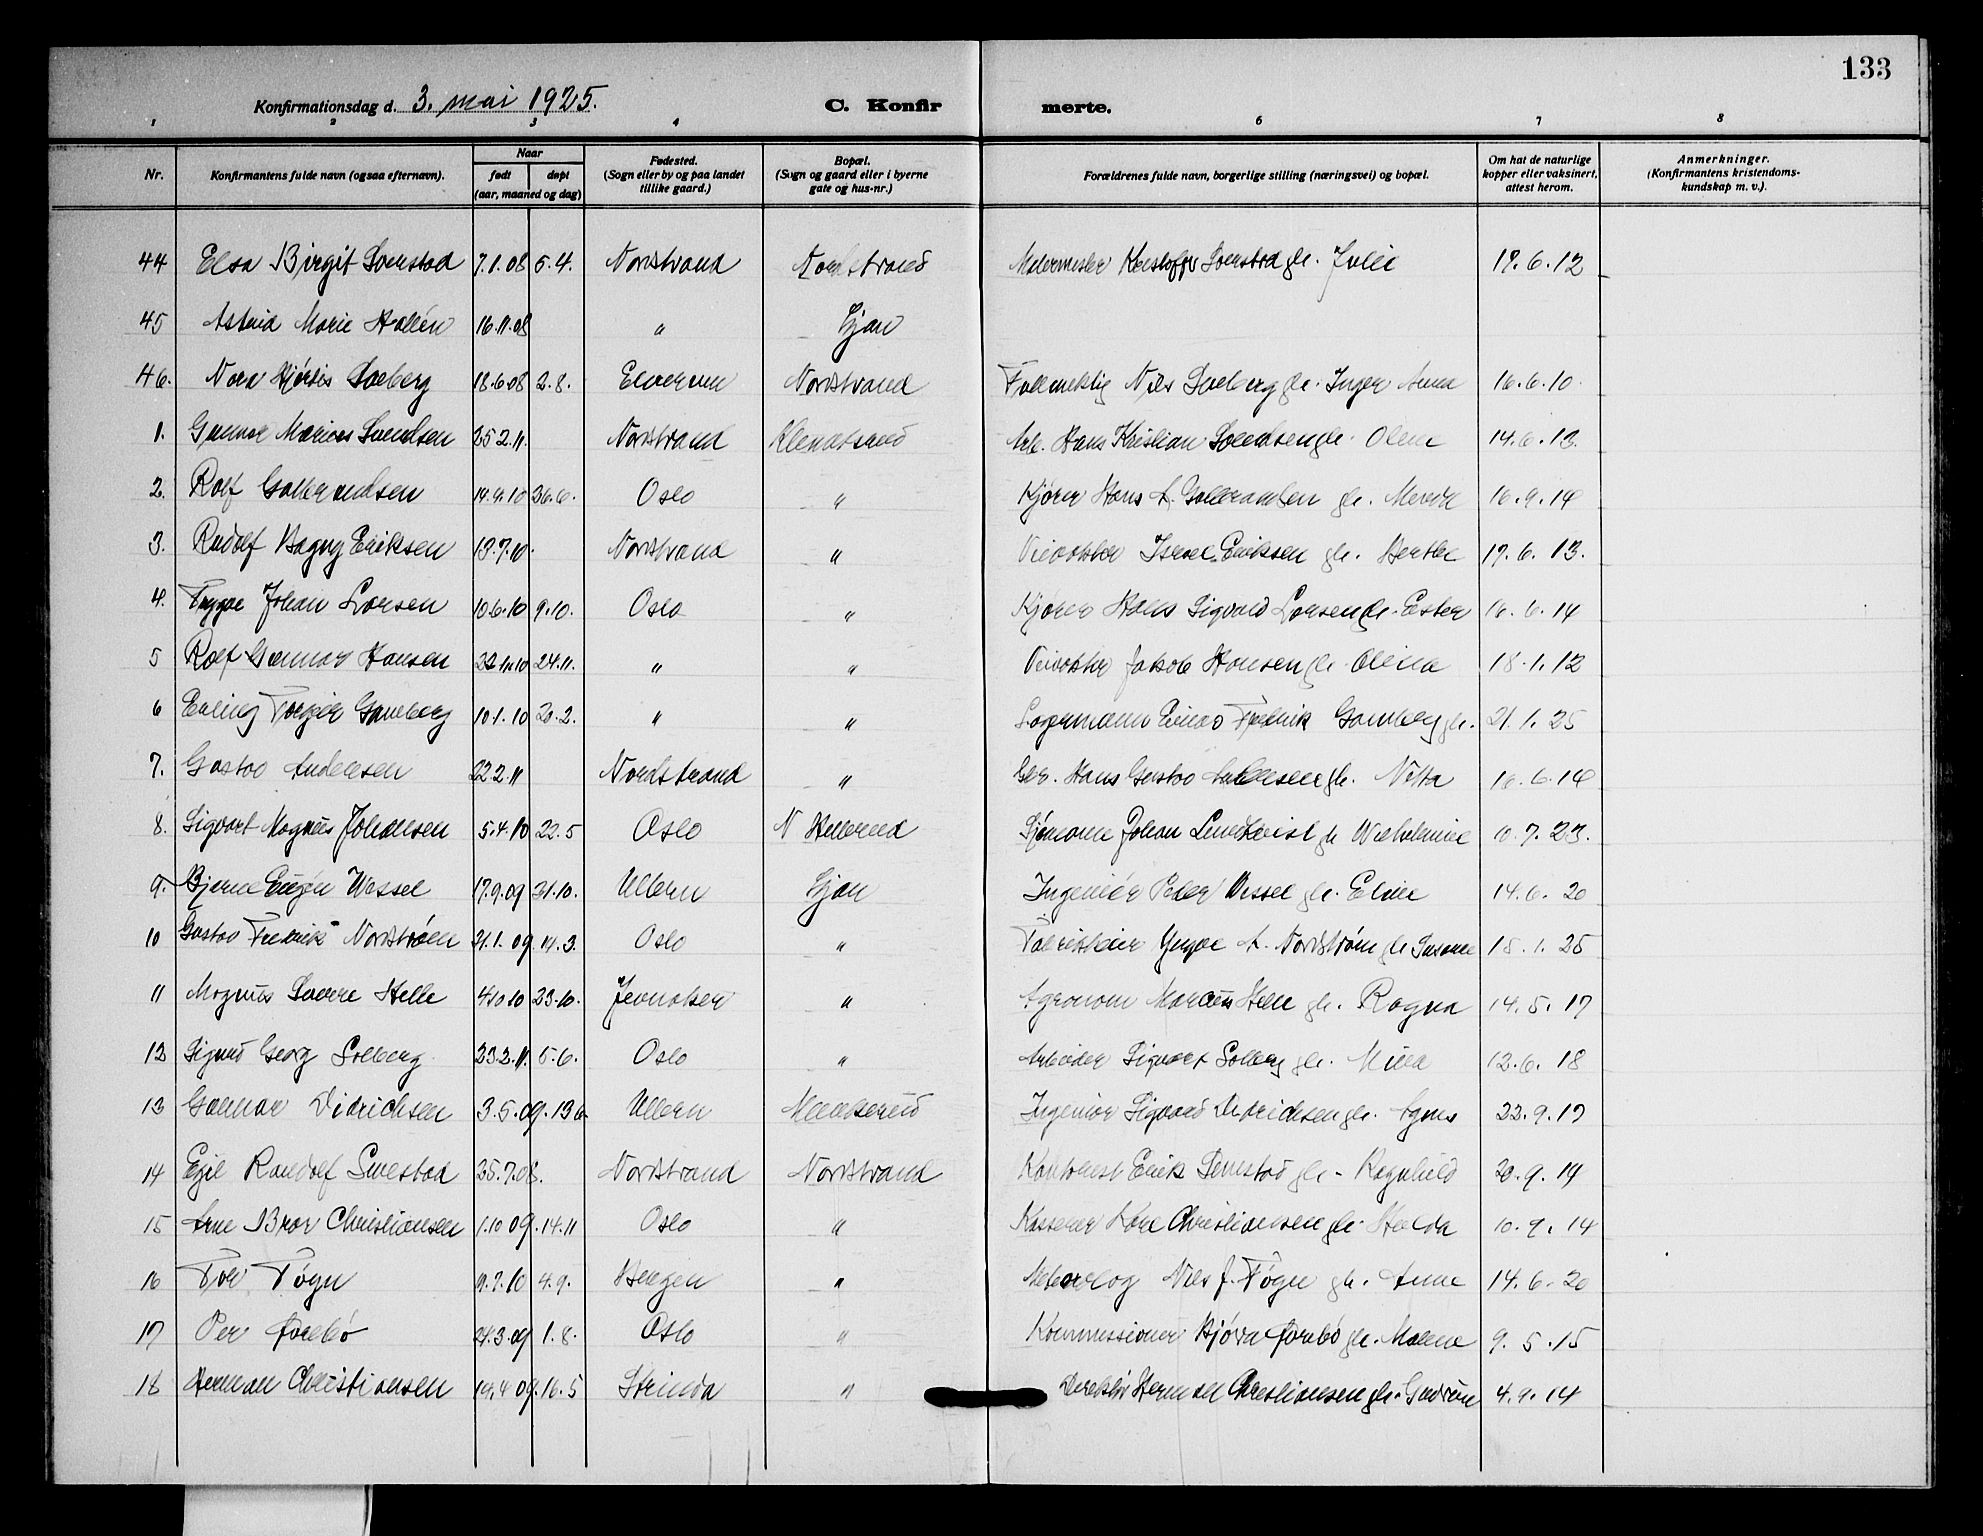 133
Konfirmationsdag d. 3. mai 1925. C. Konfir merte.
1 2 3 4 6 7 8
Nr. Konfirmantens fulde navn (ogsaa efternavn). Naar født døpt (aar, maaned og dag) Fødested. (Sogn eller by og paa landet tillike gaard.) Bopæl. (Sogn og gaard eller i byerne gate og hus-nr.) Forældrenes fulde navn, borgerlige stilling (næringsvei) og bopæl. Om hat de naturlige kopper eller vaksinert, attest herom. Anmerkninger. (Konfirmantens kristendoms-kundskap m. v.).
44 Elsa Birgit 7.1.08 5.4. Nordstrand Nordstrand Malermester gl. Julie 19.6.12
45 Astrid Marie Hallén 16.11.08 " Ljan
46. Nora Hjørdis Soeberg 18.6.08 2.8. Elverum Nordstrand Fuldmektig Nils Soeberg gl. Inger Anna 16.6.10.
1. Gunnar Marius Svendsen 25 2.11. Nordstrand Klemetsrud Arb. Hans Kristian Svendsen gl. Oline 14.6.13.
2. Rolf Gulbrandsen 14.4.10 26.6. Oslo " Kjører Hans A. Gulbrandsen gl. 16.9.14
3. Rudolf Bagny Eriksen 13.7.10. Nordstrand " Veivokter Israel Eriksen gl. Herthe 17.6.13.
4. Trygve Johan Larsen 10.6.10 9.10. Oslo " Kjører Hans Sigvald Larsen gl. Ester 16.6.14
5 Rolf Gunnar Hansen 22.10.10 24.11. " " Veivokter Jakob Hansen gl. Olina 18.1.12
6 Erling Torgeir Gamberg 10.1.10 20.2. " " Lagermann Einar Fredrik Gamberg gl. 21.1.25
7. Gustav Andersen 22 2.11 Nordstrand " Hans Gustav Andersen gl. 16.6.14
8. Sigvart Magnus Johansen 5.4.10 22.5 Oslo N Sjømann Johan Lundkvist gl Wilhelmine 10.7.23.
9. Bjarne Eugén Wessel 17.9.09 31.10. Ullern Ljan Ingeniør Peter Wessel gl. Eline 14.6.20
10 Gustav Fredrik Nordstrøm 31.1.09. 14.3. Oslo " Fabrikkeier Yngve A. Nordstrøm gl Susanne 15.1.25
11 Magnus Sverre Helle 4.10 10 23.10. Jevnaker " Agronom Marius Helle gl. Ragna 14.5.17
12 Sigurd Georg Solberg 23.2.11. 5.6. Oslo " Arbeider Sigvart Solberg gl. 12.6.18
13 Gunnar Didrichsen 3.5.09. 13 6. Ullern Munkerud Ingeniør Sigvard Didrichsen gl. Agnes 22.9.17
14 Egil Randolf 25.7.08. Nordstrand Nordstrand Kontorist Erik gl. Ragnhild 20.9.14
15 Arne Bror Christiansen 1.10 09. 14.11 Oslo " Kasserer Christiansen gl. Hulda 10.9.14
16 Tor Tøgn 9.7.10 4.9. Bergen " Meteorolog Nils J. Tøgn gl. Anne 14.6.20
17 Per Ørebø 21.3.09 1.8. Oslo " Kommissioner Bjørn Ørebø gl. Malene 9.5.15
18 Herman Christiansen 14.4 09. 16.5 Strinda " Direktør Herman Christiansen gl. Gudrun 4.9.14